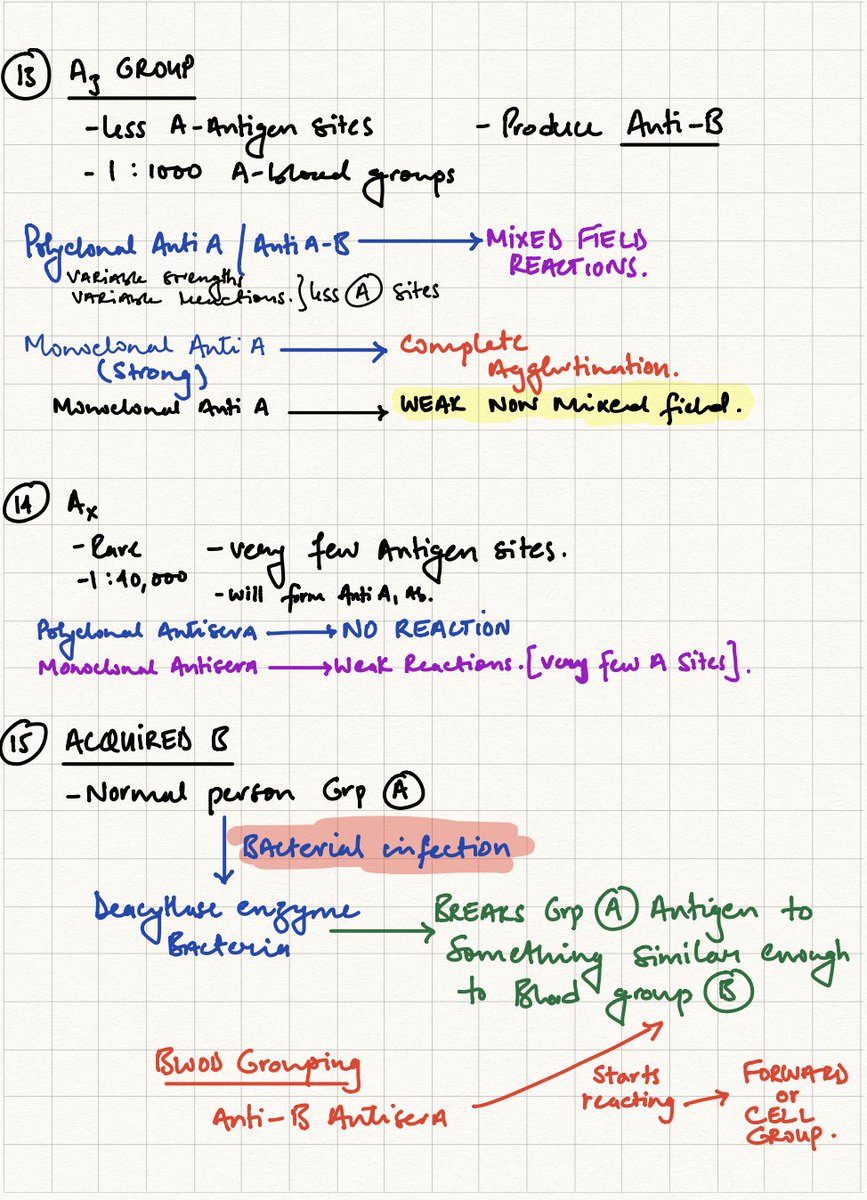 13 A3 GROUP
- less A-Antigen sites - Produce Anti-B
- 1 : 1000 A-blood groups
Polyclonal Anti A / Anti A-B → MIXED FIELD REACTIONS.
VARIABLE strengths
VARIABLE reactions. } less A sites
Monoclonal Anti A → Complete
(Strong) Agglutination.
Monoclonal Anti A → WEAK NON Mixed field.
14 Ax
- Rare - very few Antigen sites.
- 1 : 40,000 - will form Anti A1 Ab.
Polyclonal Antisera → NO REACTION
Monoclonal Antisera → Weak Reactions. [very few A sites].
15 ACQUIRED B
- Normal person Grp A
BActerial infection
Deacytlase enzyme → BREAKS Grp A Antigen to
Bacteria Something similar enough
to Blood group B
BLOOD Grouping
Anti-B Antisera → Starts reacting → FORWARD
or
CELL
GROUP.